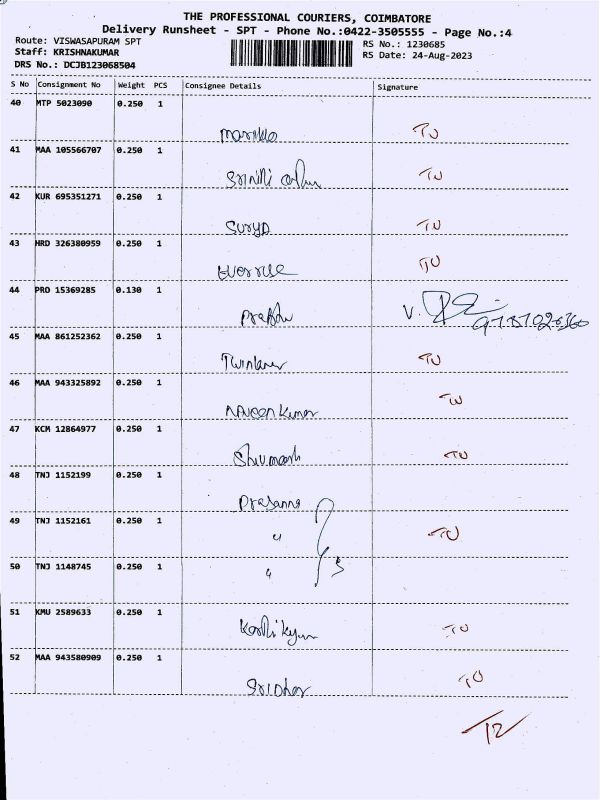 THE PROFESSIONAL COURIERS, COIMBATORE
Delivery Runsheet - SPT - Phone No.:0422-3505555 - Page No.:4
Route: VISWASAPURAM SPT
Staff: KRISHNAKUMAR
DRS No.: DCJB123068504
RS No.: 1230685
RS Date: 24-Aug-2023
S No Consignment No Weight PCS Consignee Details Signature
40 MTP 5023090 0.250 1
TU
41 MAA 105566707 0.250 1
TU
42 KUR 695351271 0.250 1
Surya TU
43 HRD 326380959 0.250 1
TU
44 PRO 15369285 0.130 1
Prabhu V.
45 MAA 861252362 0.250 1
TU
46 MAA 943325892 0.250 1
Naveen Kumar TU
47 KCM 12864977 0.250 1
TU
48 TNJ 1152199 0.250 1
Prasanna
49 TNJ 1152161 0.250 1
" TU
50 TNJ 1148745 0.250 1
" 3
51 KMU 2589633 0.250 1
TU
52 MAA 943580909 0.250 1
Sridhar TU